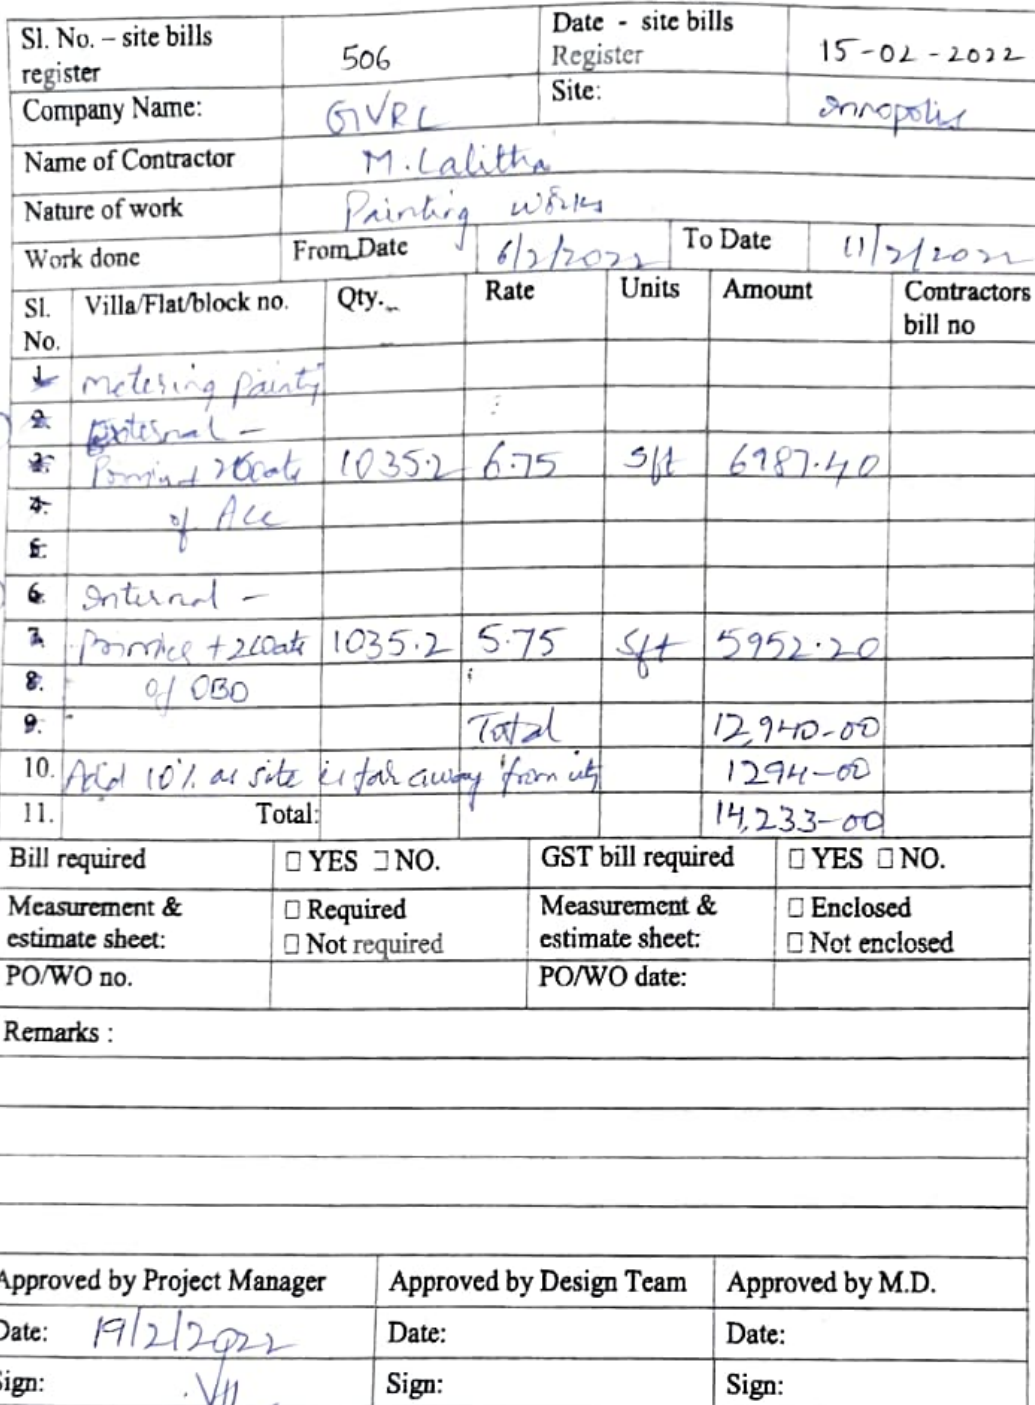 Sl. No. – site bills register 506 Date - site bills Register 15-02-2022
Company Name: GVRC Site: Innopolis
Name of Contractor M. Lalitha
Nature of work Painting works
Work done From Date 6/2/2022 To Date 11/2/2022
Sl. No. Villa/Flat/block no. Qty. Rate Units Amount Contractors bill no
1. metering painting
2. External -
3. 2 Coats 1035.2 6.75 Sft 6987.40
4. of ACE
5.
6. Internal -
7. Primer + 2 Coats 1035.2 5.75 Sft 5952.20
8. of OBD
9. Total 12,940-00
10. Add 10% as site is far away from city 1294-00
11. Total: 14,233-00
Bill required □ YES □ NO. GST bill required □ YES □ NO.
Measurement & estimate sheet: □ Required □ Not required Measurement & estimate sheet: □ Enclosed □ Not enclosed
PO/WO no. PO/WO date:
Remarks :
Approved by Project Manager Approved by Design Team Approved by M.D.
Date: 19/2/2022 Date: Date:
Sign: Sign: Sign: